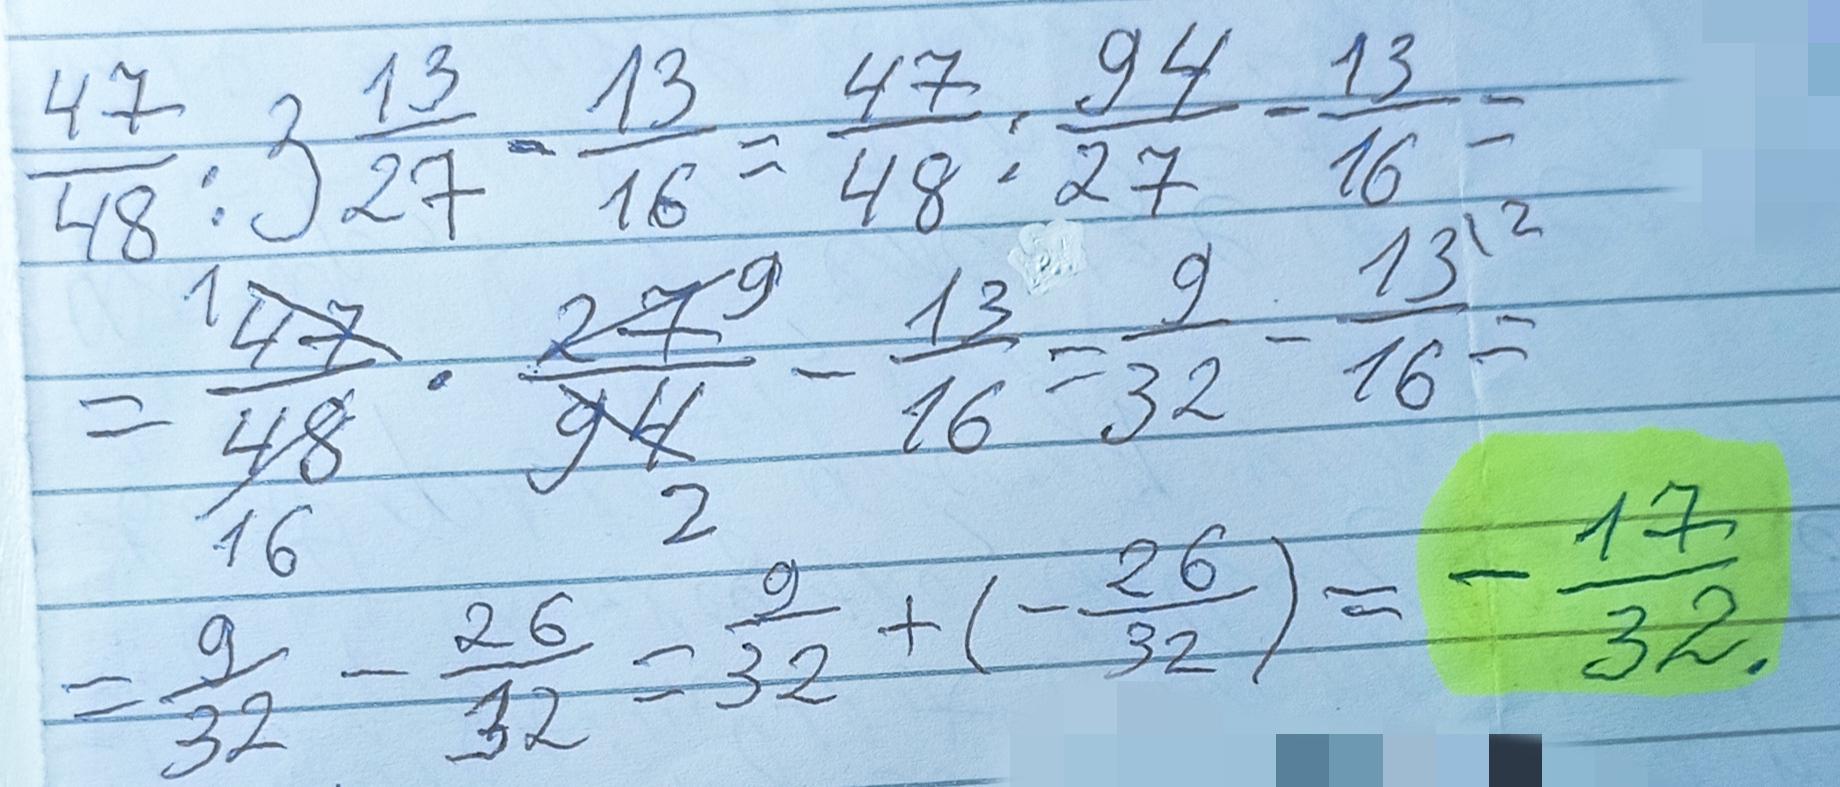 47/48 : 3 13/27 - 13/16 = 47/48 : 94/27 - 13/16 =
= 1 47/48 16 · 27 9/94 2 - 13/16 = 9/32 - 13\2/16 =
= 9/32 - 26/32 = 9/32 + (- 26/32) = - 17/32.